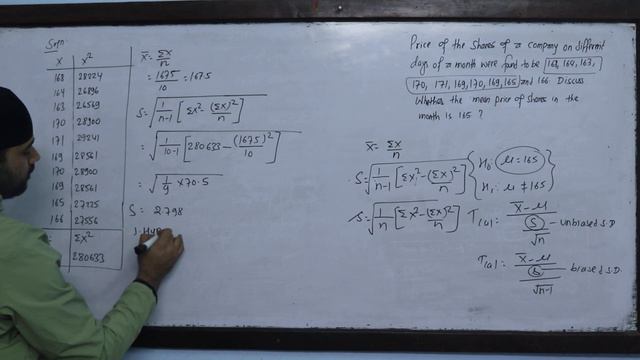 Soln
X X²
168 28224
164 26896
163 26569
170 28900
171 29241
169 28561
170 28900
169 28561
165 27225
166 27556
ΣX²
280633
X̄ = ΣX/n
= 1675/10 = 167.5
S = √(1/(n-1) [ΣX² - (ΣX)²/n])
= √(1/(10-1) [280633 - (1675)²/10])
= √(1/9 × 70.5)
S = 2.798
1. HYP
Price of the shares of a company on different
days of a month were found to be 168, 164, 163,
170, 171, 169, 170, 169, 165 and 166. Discuss
Whether the mean price of shares in the
month is 165 ?
X̄ = ΣX/n
S = √(1/(n-1) [ΣX² - (ΣX)²/n])
H₀: μ = 165
H₁: μ ≠ 165
S = √(1/n [ΣX² - (ΣX)²/n])
Tcal = (X̄ - μ)/(S/√n) - unbiased S.D
Tcal = (X̄ - μ)/(s/√(n-1)) biased S.D.